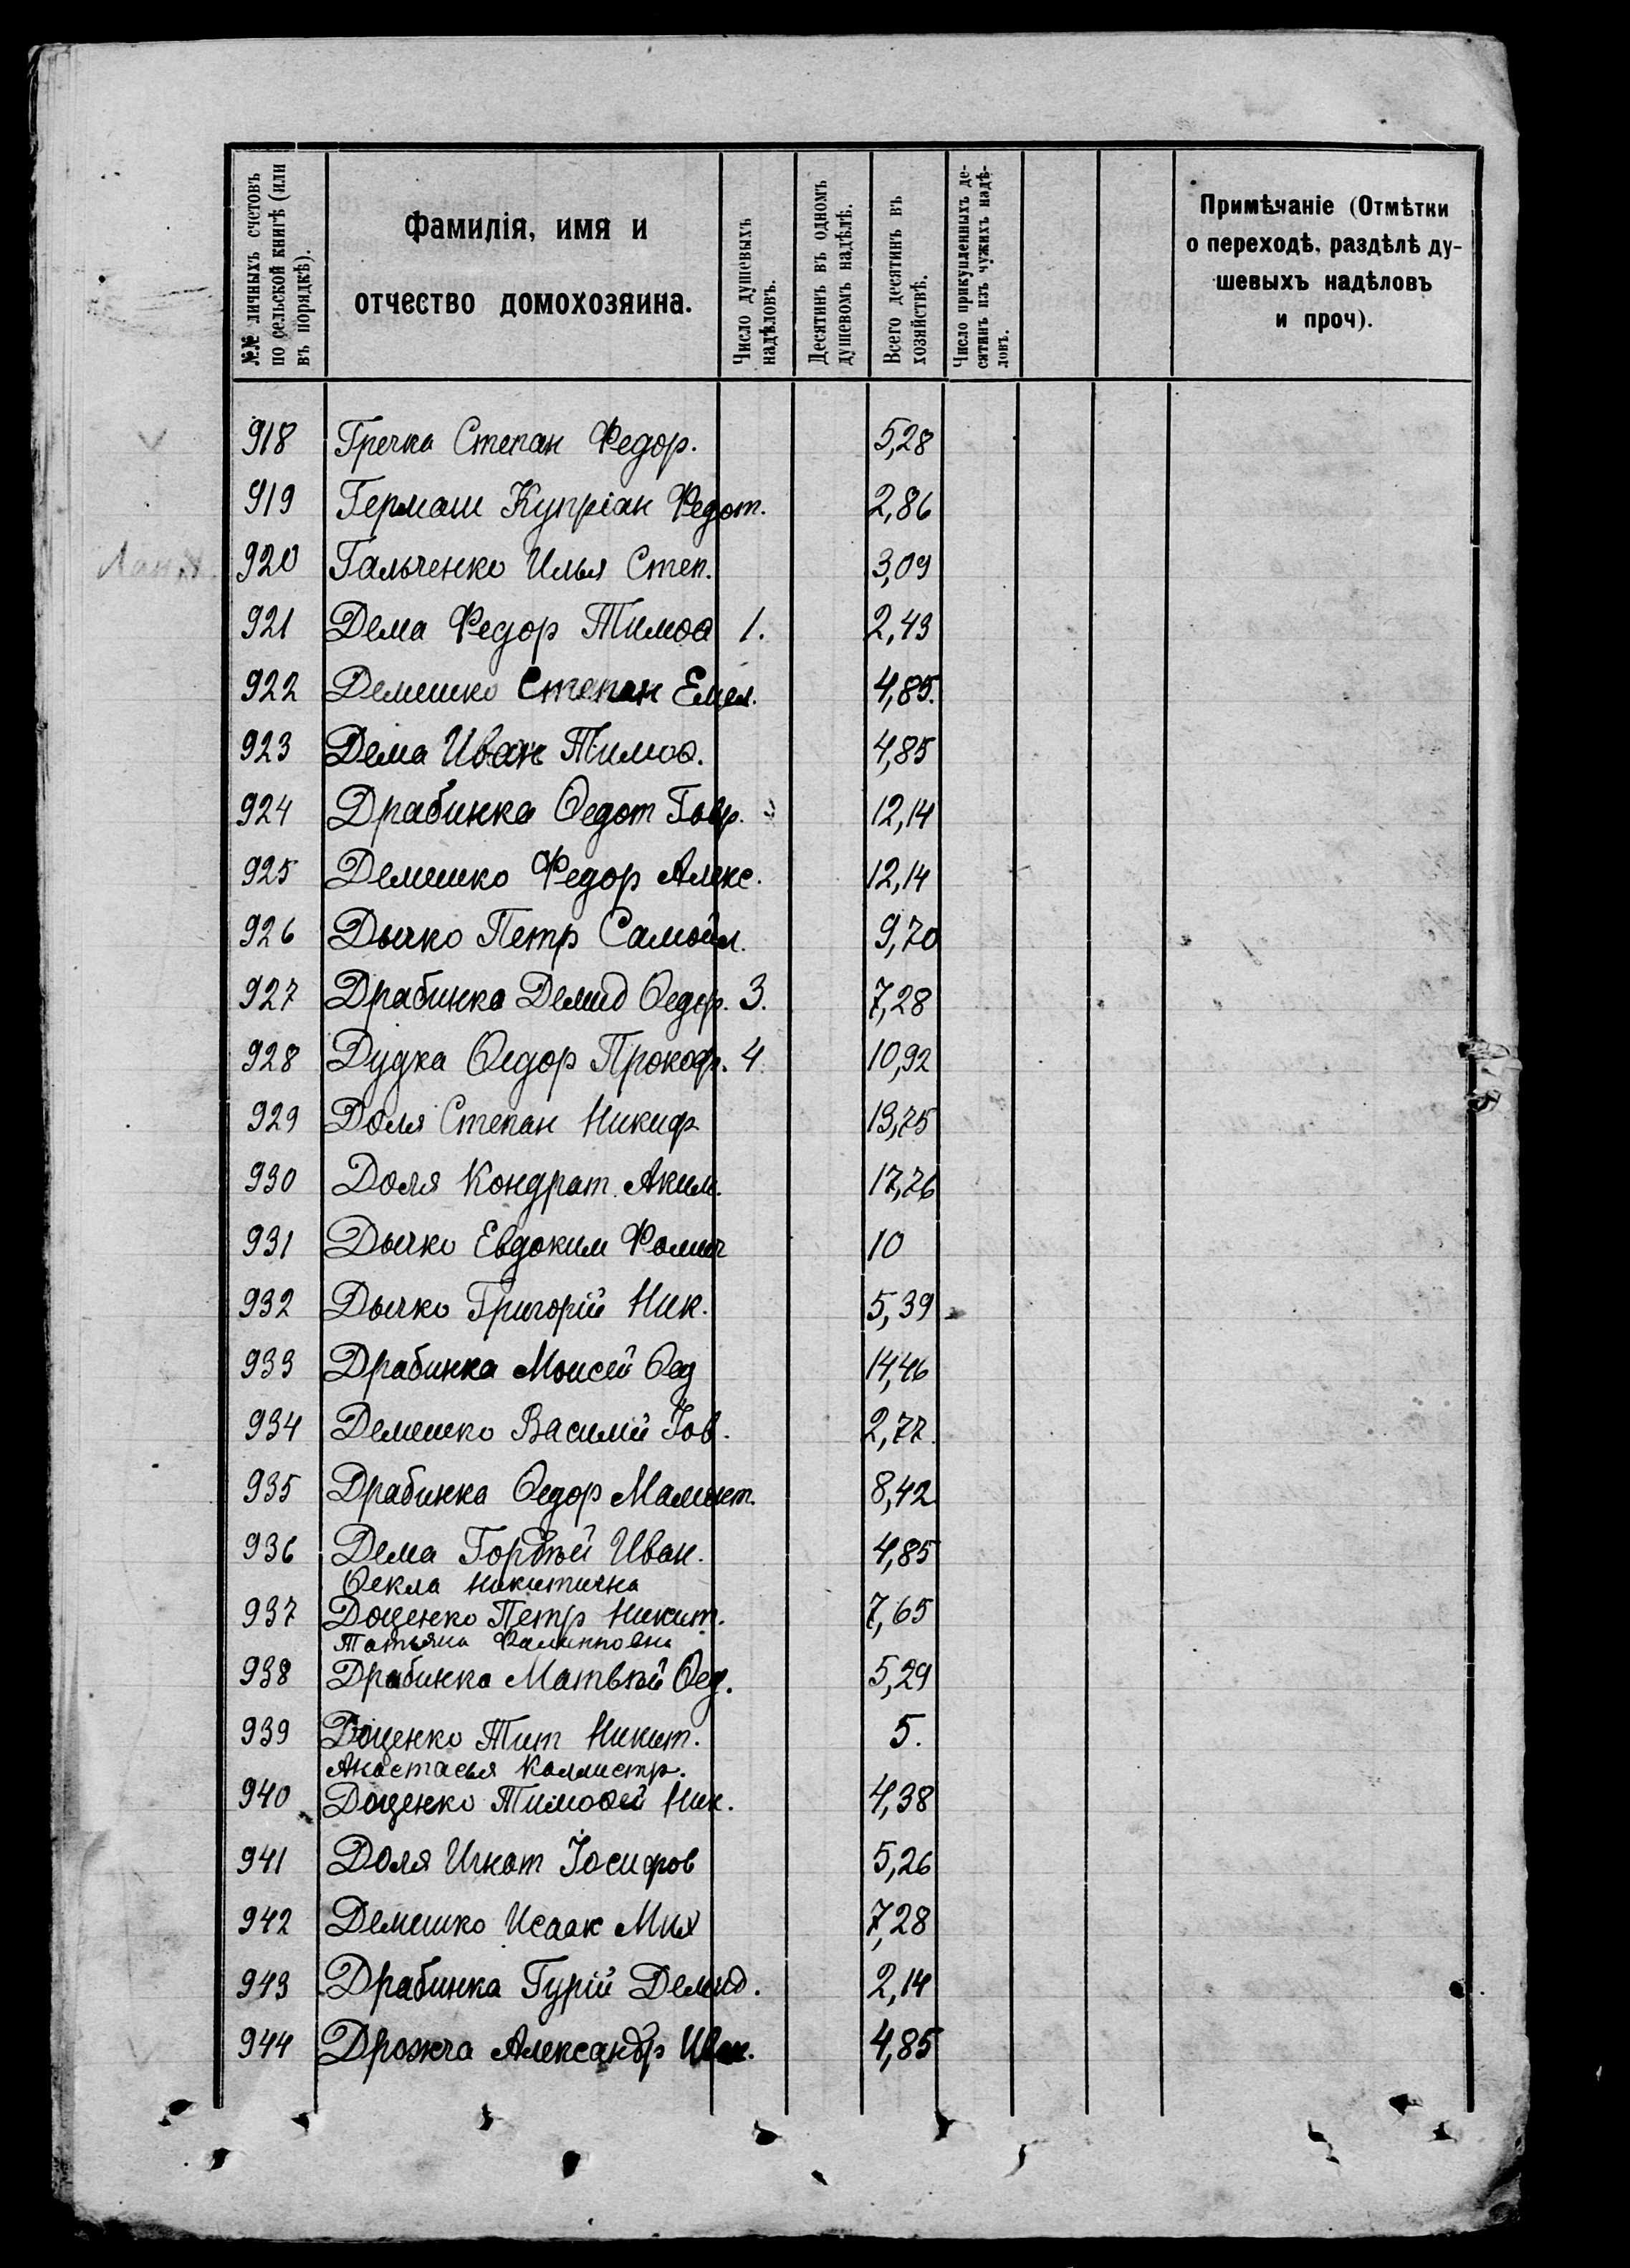 №№ личныхъ счетовъ
по сельской книгѣ (или
въ порядкѣ).
Фамилія, имя и
отчество домохозяина.
Число душевыхъ
надѣловъ.
Десятинъ въ одномъ
душевомъ надѣлѣ.
Всего десятинъ въ
хозяйствѣ.
Число прикупленныхъ де-
сятинъ изъ чужихъ надѣ-
ловъ.
Примѣчаніе (Отмѣтки
о переходѣ, раздѣлѣ ду-
шевыхъ надѣловъ
и проч).
918 Гречка Степан Федор. 5,28
919 Гермаш Купріан Федот. 2,86
920 Гальченко Илья Степ. 3,09
921 Дема Федор Тимоѳ 1. 2,43
922 Демешко Степан Емел. 4,85.
923 Дема Иван Тимоѳ. 4,85
924 Драбинка Ѳедот Гавр. 12,14
925 Демешко Федор Алекс. 12,14
926 Дычко Петр Самойл. 9,70
927 Драбинка Демид Ѳедор. 3. 7,28
928 Дудка Ѳедор Прокоф. 4. 10,92
929 Доля Степан Никиф 13,75
930 Доля Кондрат Аким. 17,76
931 Дычко Евдоким Фомич 10
932 Дычко Григорій Ник. 5,39
933 Драбинка Моисей Ѳед 14,46
934 Демешко Василій Іов. 2,77.
935 Драбинка Ѳедор 8,42
936 Дема Гордѣй Иван. 4,85
Ѳекла Никитична
937 Доценко Петр Никит. 7,65
Татьяна Филипповна
938 Драбинка Матвѣй Ѳед. 5,29
939 Доценко Тит Никит. 5.
Анастасья Каллистр.
940 Доценко Тимоѳей Ник. 4,38
941 Доля Игнат Іосифов 5,26
942 Демешко Исаак Мих 7,28
943 Драбинка Гурій Демид. 2,14
944 Дрожча Александр Иван. 4,85